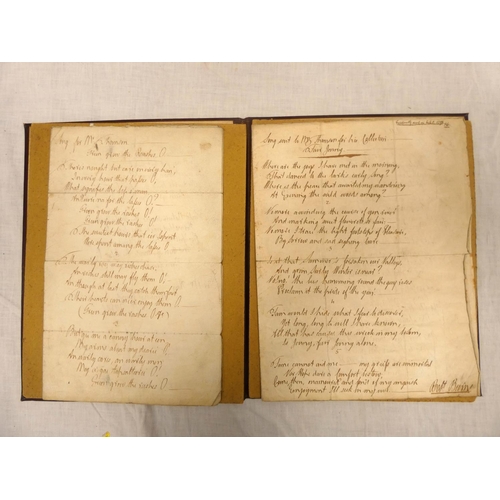 Song for Mr Thomson
Green Grow the Rashes O
There's nought but care on every han',
In every hour that passes O;
What signifies the life o' man
An' twere na for the lasses O?
Green grow the rashes O!
Green grow the rashes O!
The sweetest hours that e'er I spent
Were spent among the lasses O
The warly race may riches chase
An' riches still may fly them O;
An' though at last they catch them fast
Their hearts can ne'er enjoy them O
(Green grow the rashes O &c)
But gie me a canny hour at e'en
My arms about my dearie O
An' warly cares, an' warly men
May a' gae tapsalteerie O
Green grow the rashes O
Song sent to Mr Thomson for his Collection
Where are the joys I have met in the morning,
That danced to the lark's early song?
Where is the peace that awaited my wandering
At evening the wild woods among?
No more a winding the course of yon river
And marking sweet flowerets so fair
No more I trace the light footsteps of Pleasure,
But Sorrow and sad sighing Care
Is it that Summer's forsaken our valleys
And grim surly Winter is near?
No, no, the bees humming round the gay roses
Proclaim it the pride of the year
Fain would I hide what I fear to discover,
Yet long, long, too well I have known,
All that has caused this wreck in my bosom,
Is Jenny, fair Jenny alone
Time cannot aid me my griefs are immortal
Nor Hope dare a comfort bestow
Come then, enamoured and fond of my anguish
Enjoyment I'll seek in my woe
Robt Burns